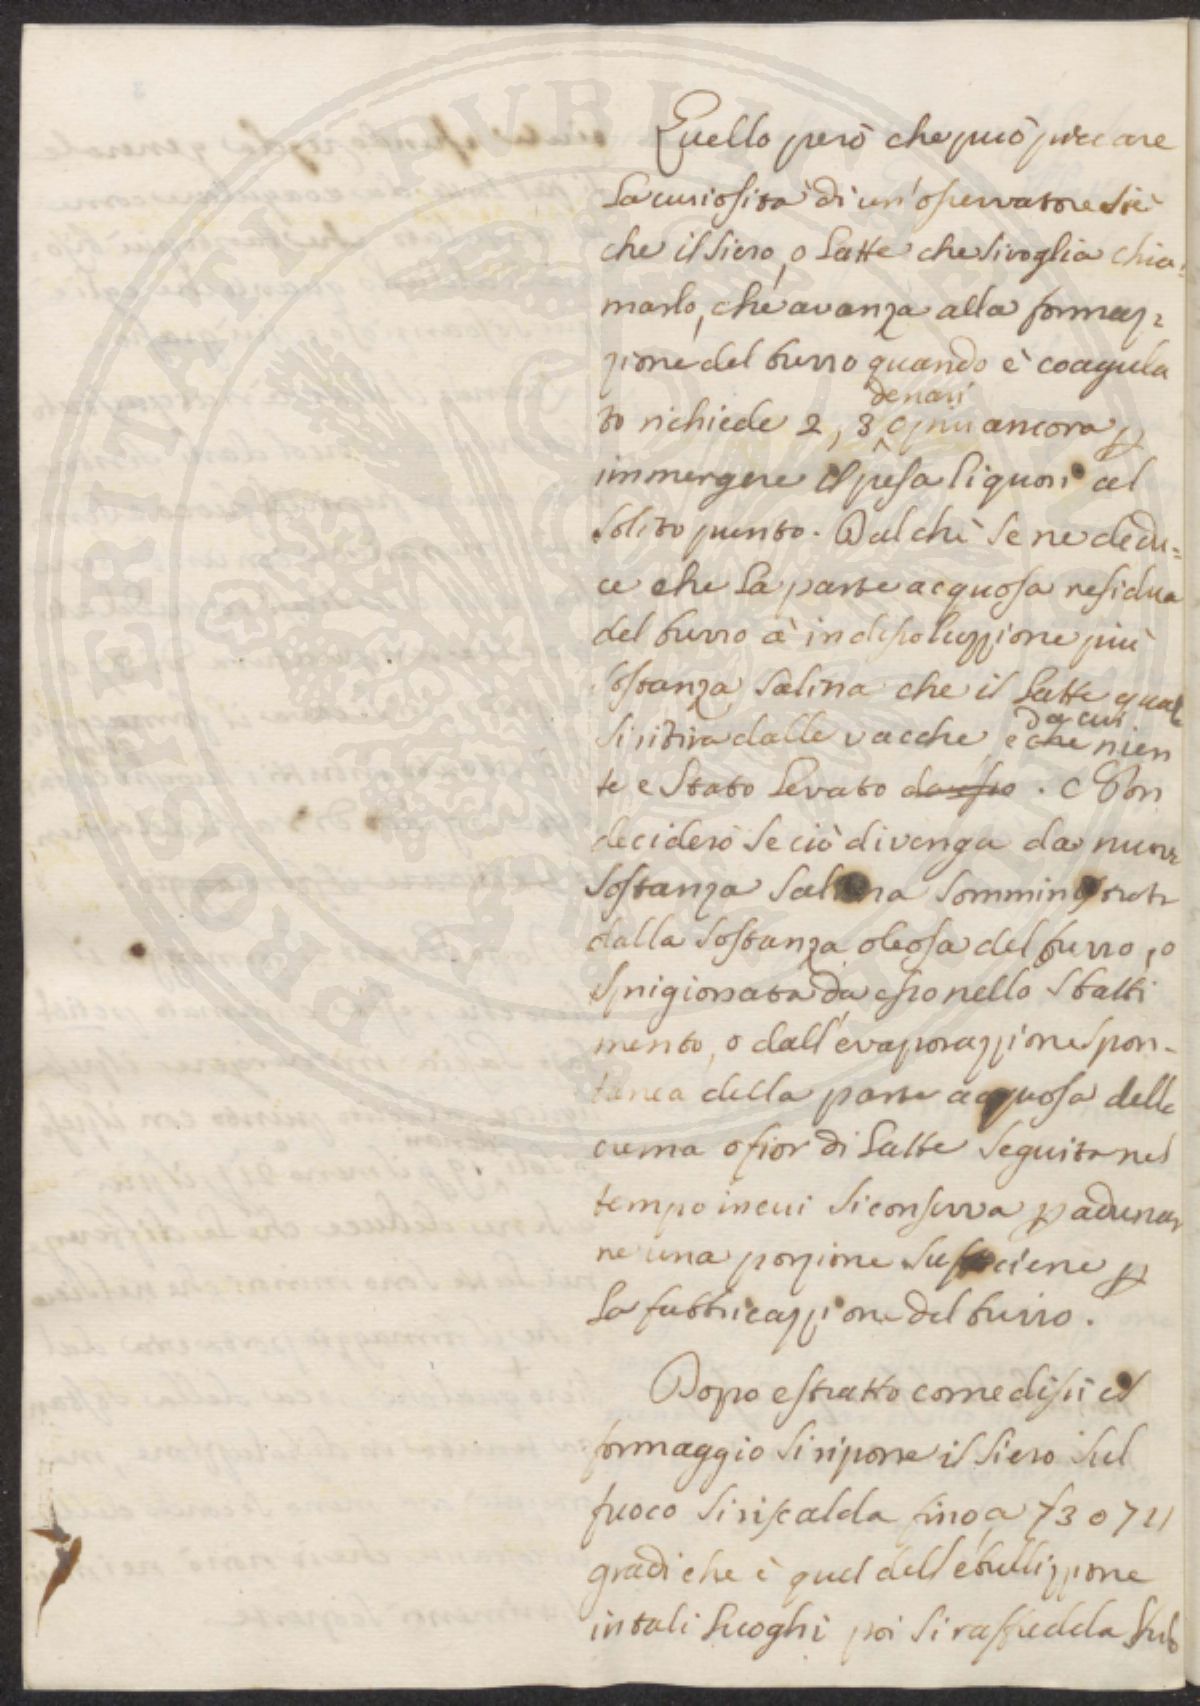 Quello però che può piccare
la curiosità di un'osservatore si è
che il siero, o latte che si voglia chia=
marlo, che avanza alla formaz=
zione del burro quando è coagula
denari
to richiede 2, 3 o più ancora p
immergere il pesa liquori al
solito punto. Dal chè se ne dedu=
ce che la parte acquosa residua
del burro à in dissoluzzione più
sostanza salina che il latte quale
da cui
si ritira dalle vacche e che nien
te e stato levato da esso. Non
deciderò se ciò divenga da nuova
sostanza salina somministrata
dalla sostanza oleosa del burro, o
sprigionata da esso nello sbatti
mento, o dall'evaporazzione spon=
tanea della parte acquosa della
crema o fior di latte seguita nel
tempo in cui si conserva p adunar
ne una porzione sufficiene p
la fabbricazzione del burro.
Dopo estratto come dissi il
formaggio si ripone il siero sul
fuoco si riscalda fino a 73 o 74
gradi che è quel dell'ebullizzione
in tali luoghi poi si raffredda sub
PROSPERINATI PUBLICAE